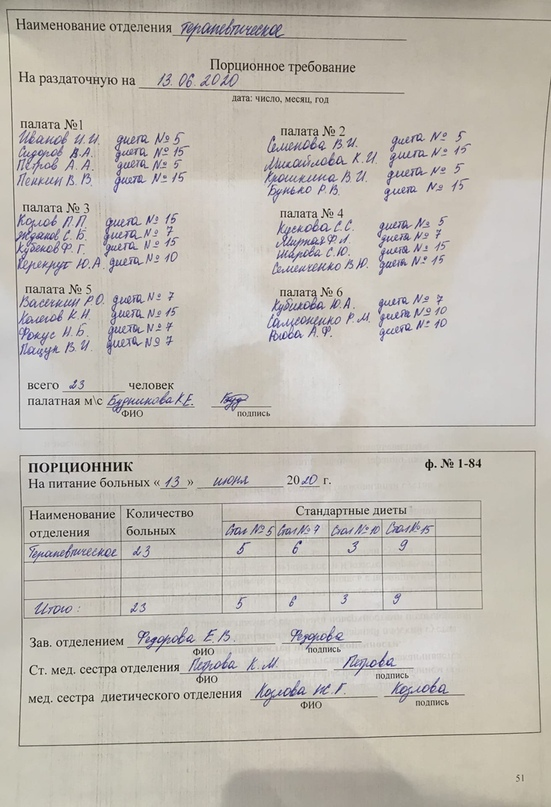 Наименование отделения Терапевтическое
Порционное требование
На раздаточную на 13.06.2020
дата: число, месяц, год
палата №1
Иванов И.И. диета № 5
Сидоров В.А. диета № 15
Петров А.А. диета № 5
Пенкин В.В. диета № 15
палата № 2
Семенова В.И. диета № 5
Михайлова К.И. диета № 15
Крошкина В.И. диета № 5
Бунько Р.В. диета № 15
палата № 3
Козлов П.П. диета № 15
Жданов С.Б. диета № 7
Кубеков Ф.Г. диета № 15
Керекрут Ю.А. диета № 10
палата № 4
Кускова С.С. диета № 5
Мирная Ф.Л. диета № 7
Шарова С.Ю. диета № 15
Семенченко В.Ю. диета № 15
палата № 5
Васечкин Р.О. диета № 7
Колегов К.Н. диета № 15
Фокус Н.Б. диета № 7
Пацук В.И. диета № 7
палата № 6
Кубикова Ю.А. диета № 7
Самсоненко Р.М. диета № 10
Юрова А.Ф. диета № 10
всего 23 человек
палатная м\с Будникова К.Е.
ФИО подпись
ПОРЦИОННИК ф. № 1-84
На питание больных « 13 » июня 2020 г.
Наименование отделения Количество больных Стандартные диеты
Стол № 5 Стол № 7 Стол № 10 Стол № 15
Терапевтическое 23 5 6 3 9
Итого: 23 5 6 3 9
Зав. отделением Федорова Е.В. Федорова
ФИО подпись
Ст. мед. сестра отделения Петрова К.М. Петрова
ФИО подпись
мед. сестра диетического отделения Козлова Ж.Г. Козлова
ФИО подпись
51